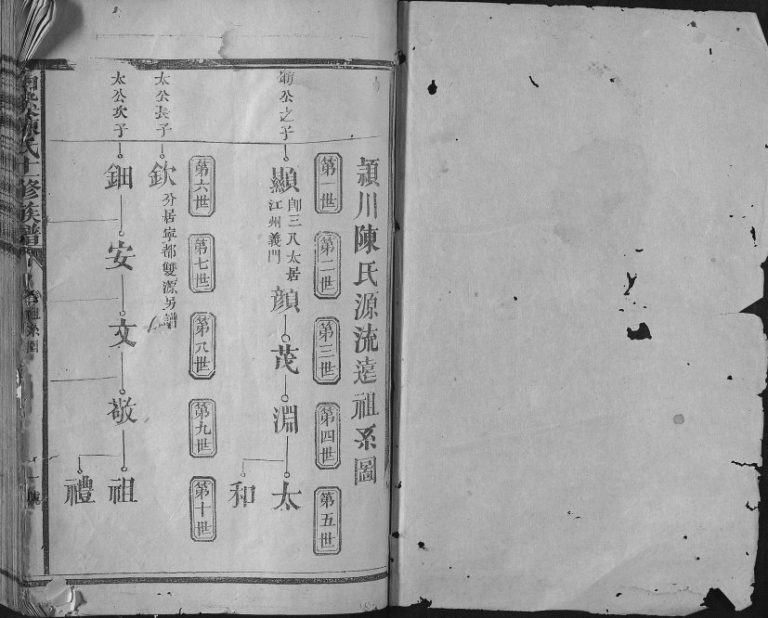 潁川陳氏源流遠祖系圖
第一世
第二世
第三世
第四世
第五世
公之子
顯
江州義門
顔
茂
淵
太
和
第六世
第七世
第八世
第九世
第十世
太公長子
欽
分居寧都雙源另譜
太公次子
鈿
安
文
敬
祖
禮
陳氏十修族譜